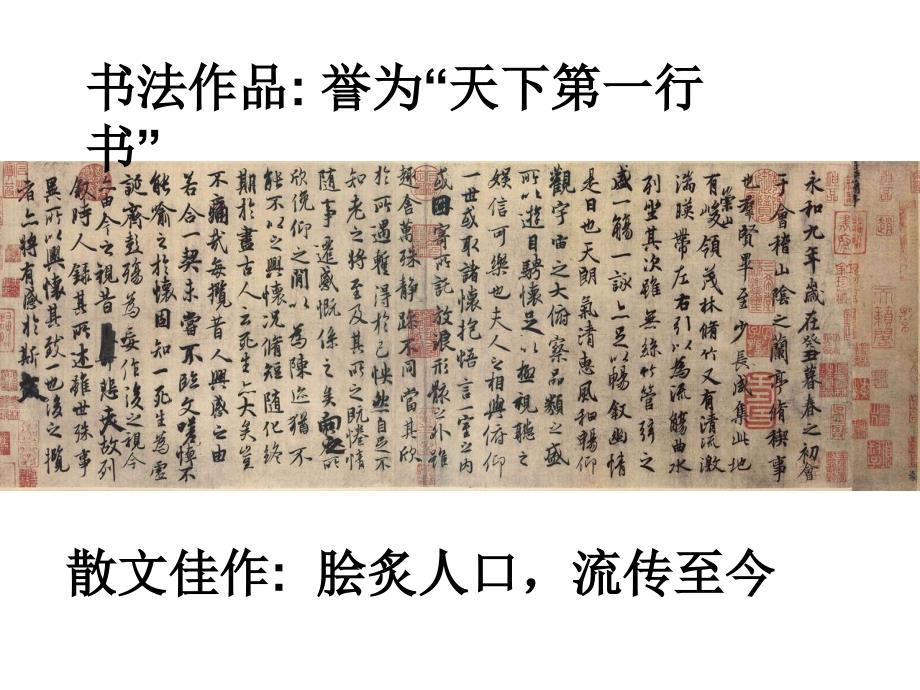 书法作品：誉为“天下第一行
书”
永和九年歲在癸丑暮春之初會
于會稽山陰之蘭亭脩稧事
也羣賢畢至少長咸集此地
有崇山峻領茂林脩竹又有清流激
湍暎帶左右引以為流觴曲水
列坐其次雖無絲竹管弦之
盛一觴一詠亦足以暢敘幽情
是日也天朗氣清惠風和暢仰
觀宇宙之大俯察品類之盛
所以遊目騁懷足以極視聽之
娛信可樂也夫人之相與俯仰
一世或取諸懷抱悟言一室之內
或因寄所託放浪形骸之外雖
趣舍萬殊靜躁不同當其欣
於所遇暫得於己怏然自足不
知老之將至及其所之既惓情
隨事遷感慨係之矣向之所
欣俛仰之閒以為陳迹猶不
能不以之興懷況脩短隨化終
期於盡古人云死生亦大矣豈
不痛哉每攬昔人興感之由
若合一契未嘗不臨文嗟悼不
能喻之於懷固知一死生為虛
誕齊彭殤為妄作後之視今
亦由今之視昔悲夫故列
敘時人錄其所述雖世殊事
異所以興懷其致一也後之攬
者亦將有感於斯文
散文佳作：脍炙人口，流传至今